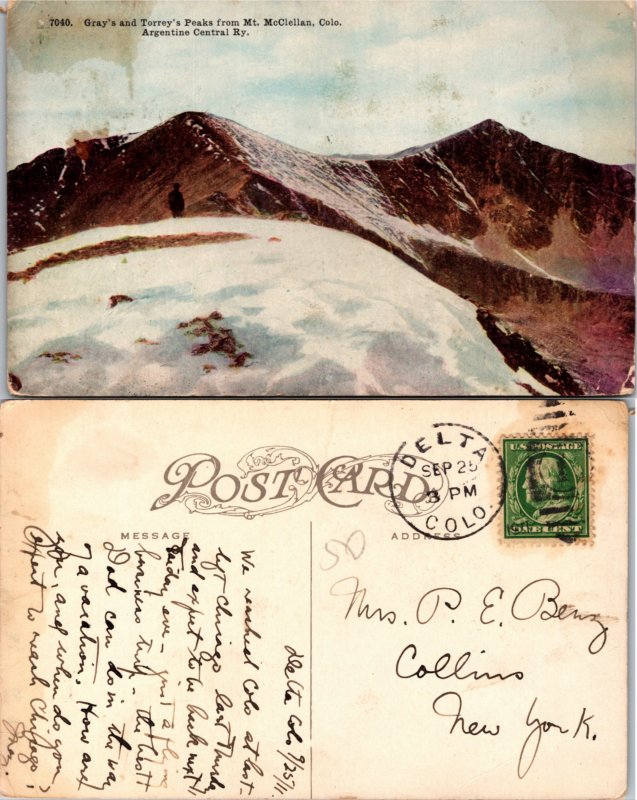 7040. Gray's and Torrey's Peaks from Mt. McClellan, Colo.
Argentine Central Ry.
POST CARD
MESSAGE
ADDRESS
DELTA
SEP 25
3 PM
COLO.
U.S. POSTAGE
50
Mrs. P. E. Benz
Collins
New York.
Delta Colo 9/25/11
We reached Colo at last -
left Chicago last Thursday
and expect to be back next
Friday eve - just a flying
business trip - the best
Dad can do in the way
of a vacation. How are
you, and when do you
expect to reach Chicago?